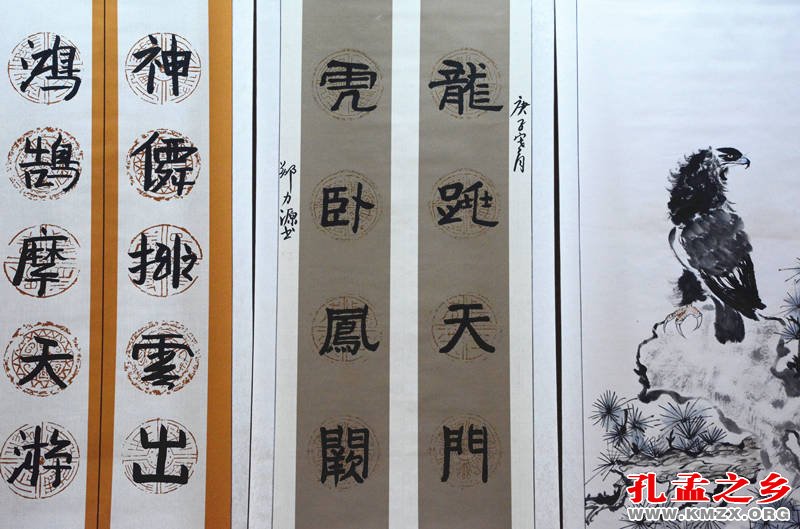 庚子月
龍跳天門
虎卧鳳闕
郑力源书
神僊排雲出
鴻鵠摩天游
孔孟之乡
WWW.KMZX.ORG